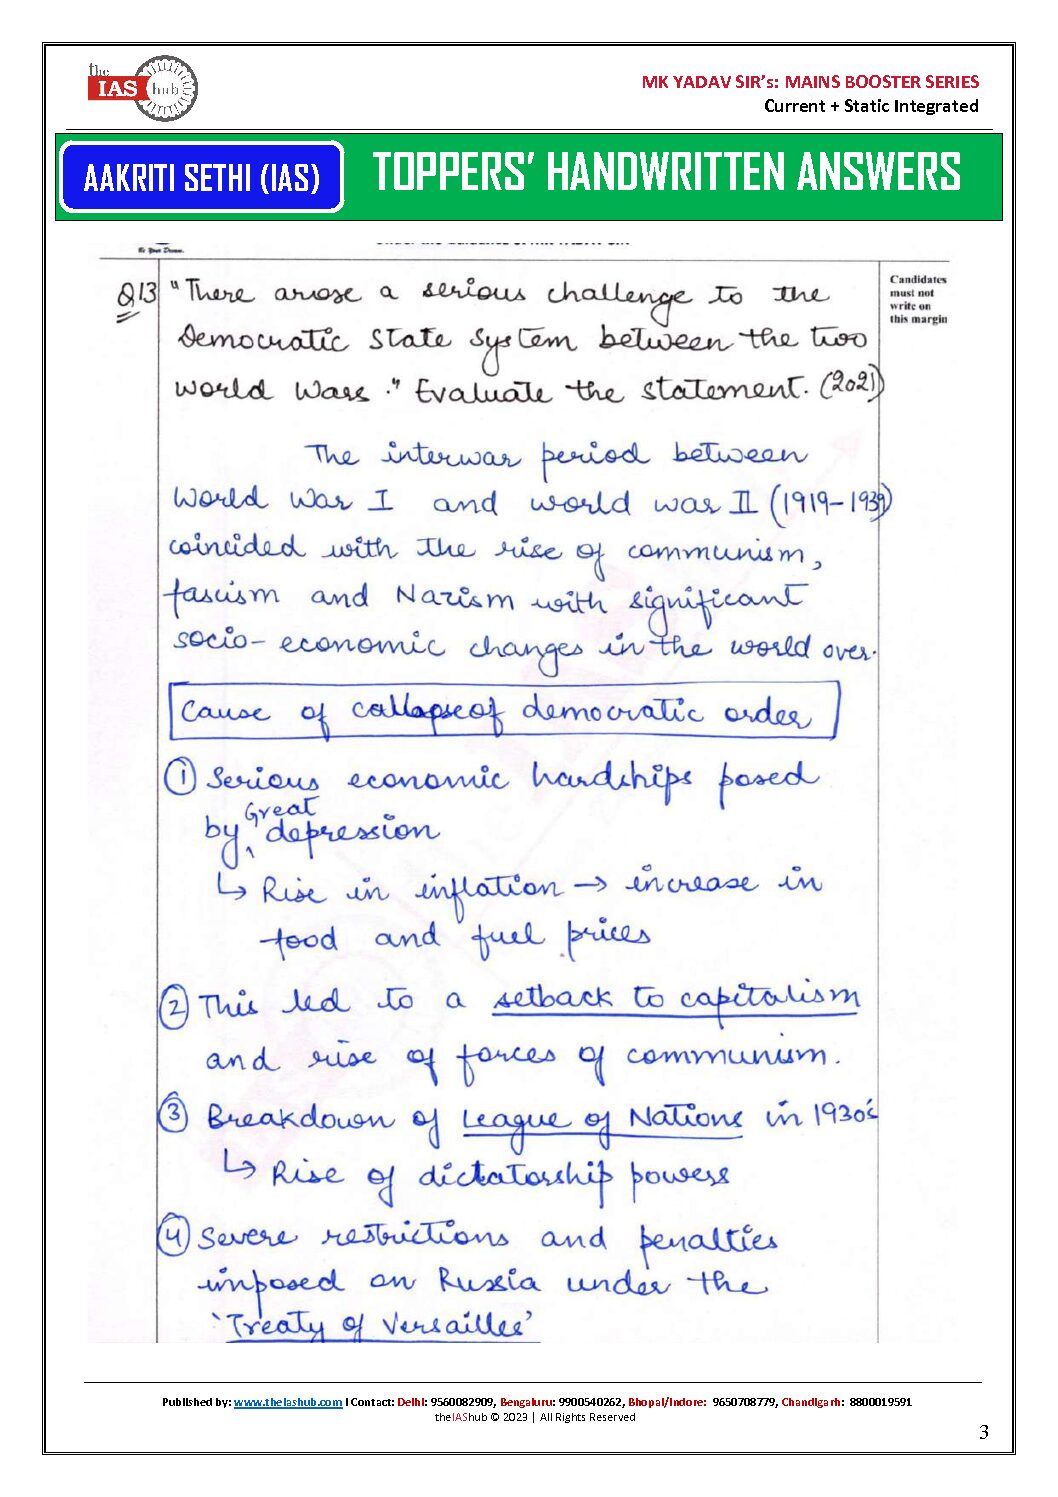 the
IAS hub
MK YADAV SIR's: MAINS BOOSTER SERIES
Current + Static Integrated
AAKRITI SETHI (IAS)
TOPPERS' HANDWRITTEN ANSWERS
Candidates
must not
write on
this margin
Q13 "There arose a serious challenge to the
Democratic State System between the two
world Wars." Evaluate the statement. (2021)
The interwar period between
World War I and world war II (1919-1939)
coincided with the rise of communism,
fascism and Nazism with significant
socio-economic changes in the world over.
Cause of collapse of democratic order
① Serious economic hardships posed
Great
by depression
↳ Rise in inflation → increase in
food and fuel prices
② This led to a setback to capitalism
and rise of forces of communism.
③ Breakdown of League of Nations in 1930's
↳ Rise of dictatorship powers
④ Severe restrictions and penalties
imposed on Russia under the
'Treaty of Versailles'
Published by: www.theiashub.com I Contact: Delhi: 9560082909, Bengaluru: 9900540262, Bhopal/Indore: 9650708779, Chandigarh: 8800019591
theIAShub © 2023 | All Rights Reserved
3